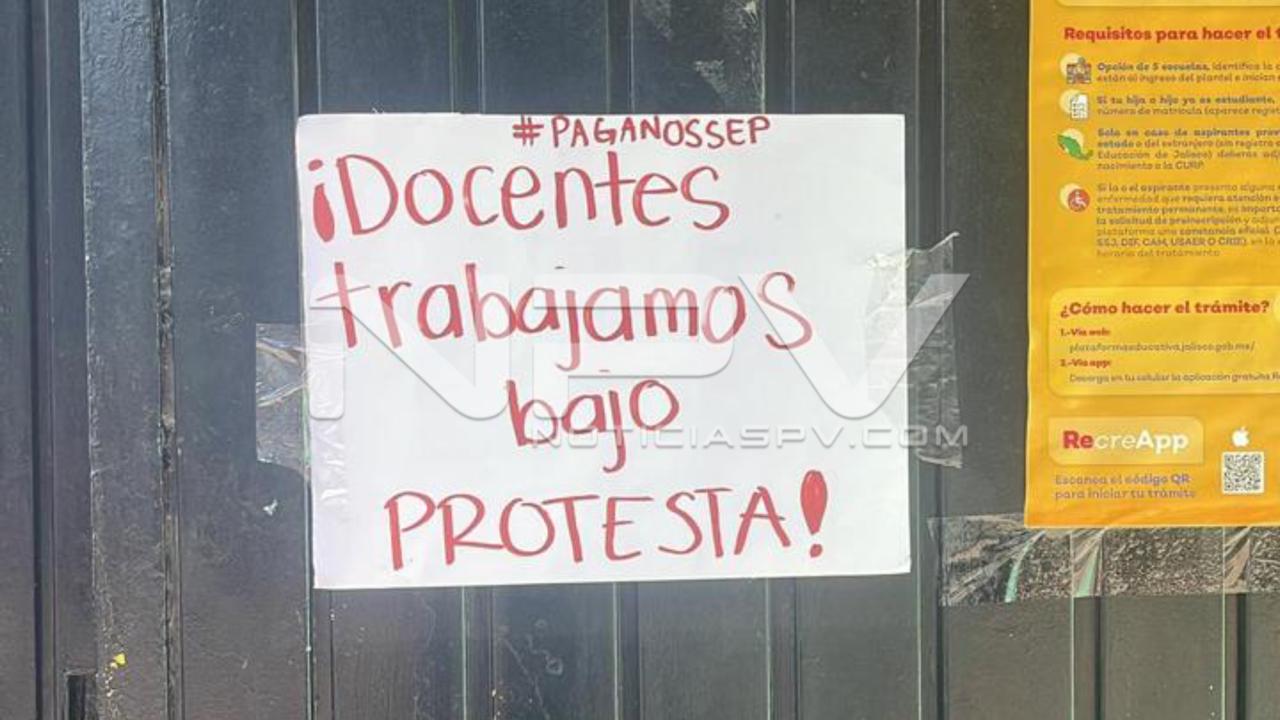 #PAGANOSSEP
¡Docentes
trabajamos
bajo
PROTESTA!
NPV
NOTICIASPV.COM
Requisitos para hacer el
Opción de 5 escuelas, identifica la
están al ingreso del plantel e inician
Si tu hija o hijo ya es estudiante,
número de matrícula (aparece
Solo en caso de aspirantes
estado o del extranjero (sin registro
Educación de Jalisco) deberás
nacimiento o la CURP.
Si la o el aspirante presenta alguna
enfermedad que requiera atención
tratamiento permanente, es
la solicitud de preinscripción y
plataforma una constancia oficial
SSJ, DIF, CAM, USAER O CRIE), en la
horario del tratamiento
¿Cómo hacer el trámite?
1.-Vía web:
plataformaeducativa.jalisco.gob.mx/
2.-Vía app:
Descarga en tu celular la aplicación gratuita
RecreApp
Escanea el código QR
para iniciar tu trámite